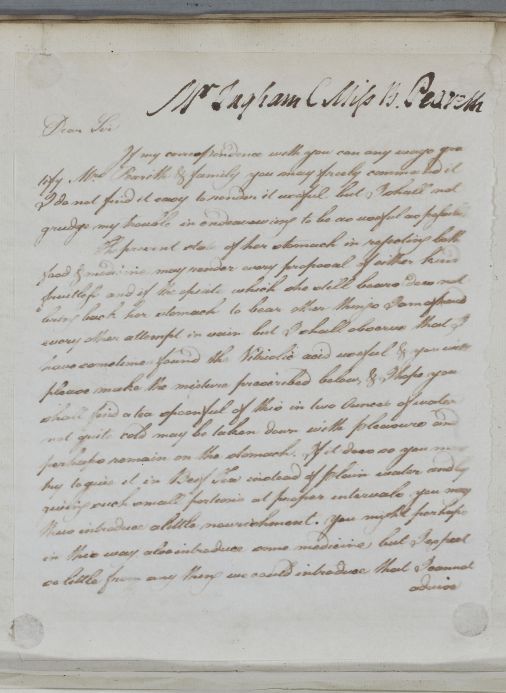 Mr Ingham C Miss B. Pereth
Dear Sir
If my correspondence with you can any ways gra
tify Mrs Pereith & family you may freely command it
I do not find it easy to render it useful but I shall not
grudge my trouble in endeavouring to be as useful as possible
The present state of her stomach in rejecting both
food & medicine may render every proposal of either kind
fruitless and if the opiate which she still bears does not
bring back her stomach to bear other things I am afraid
every other attempt in vain but I shall observe that I
have sometimes found the Vitriolic acid useful & you will
please make the mixture prescribed below, & I hope you
shall find a tea spoonful of this in two ounces of water
not quite cold may be taken down with pleasure and
perhaps remain on the stomach. If it does so you may
try to give it in Beef Tea instead of plain water and by
giving such small portions at proper intervals you may
thus introduce a little nourishment. You might perhaps
in this way also introduce some medicine, but I expect
so little from any thing we could introduce that I cannot
advise